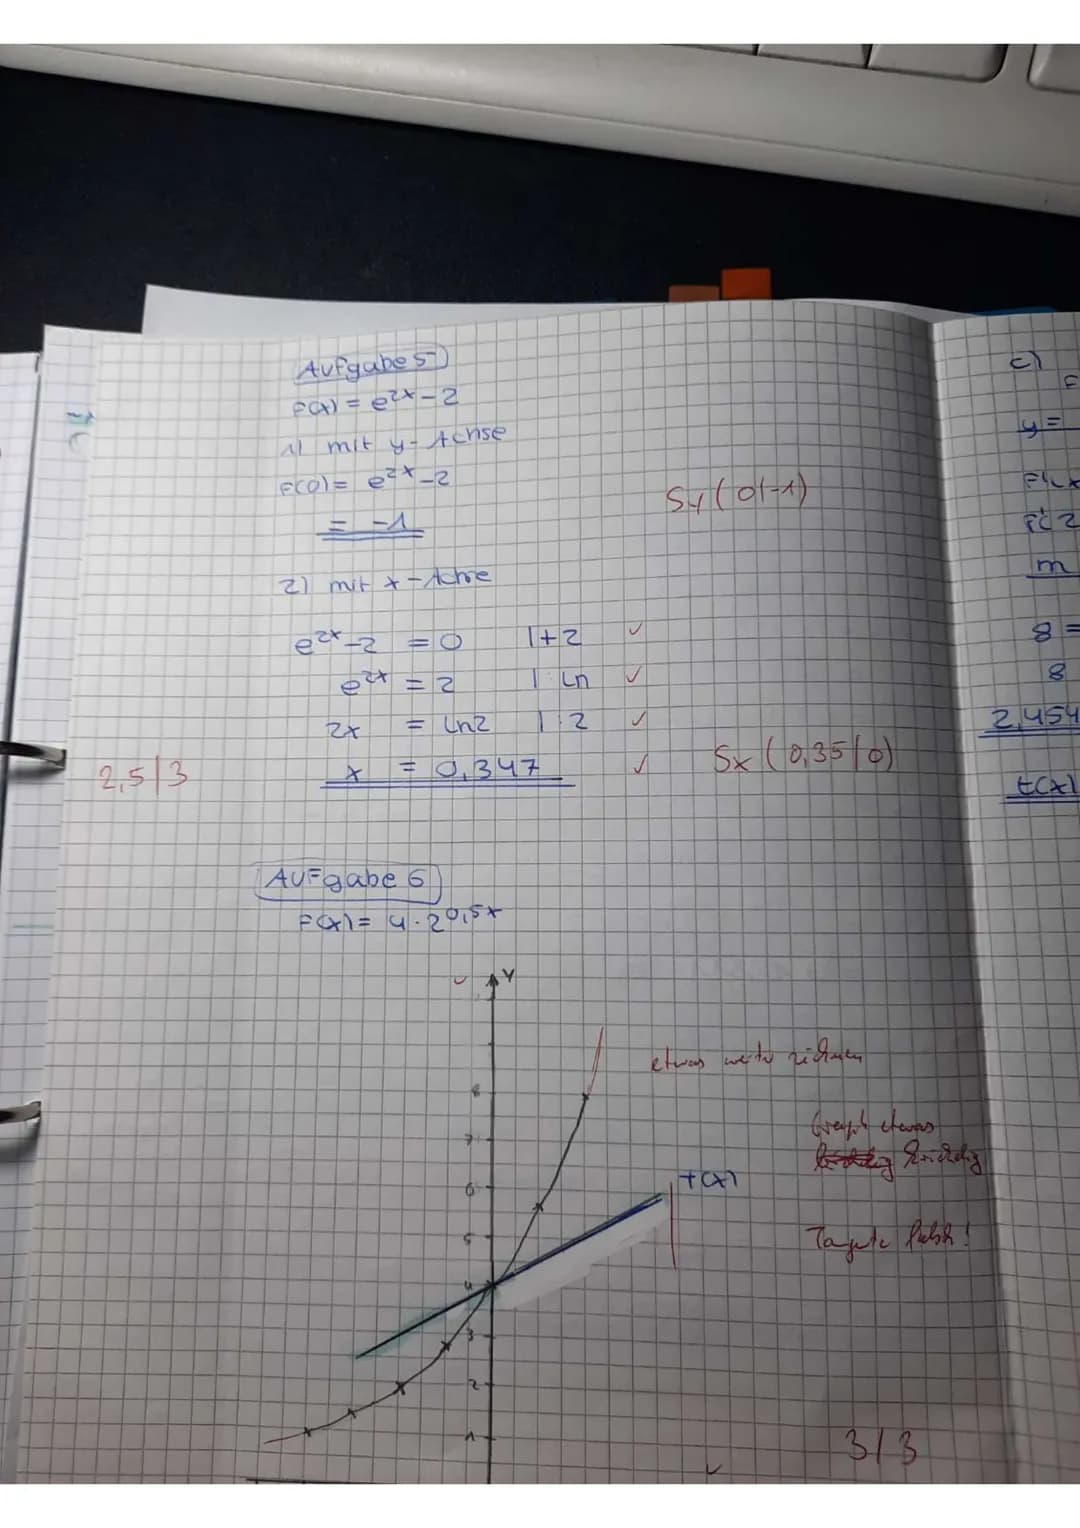 Aufgabe 5
F(x) = e^2x - 2
1) mit y-Achse
F(0) = e^2x - 2
= -1
Sy (0|-1)
2) mit x-Achse
e^2x - 2 = 0 | +2 ✓
e^2x = 2 | ln ✓
2x = ln2 | : 2 ✓
x = 0,347 ✓
Sx (0,35/0)
2,5/3
Aufgabe 6
F(x) = 4 · 2^0,5x
✓
y
8
7
6
5
4
3
2
1
t(x)
etwas weiter zeichnen
Graph etwas
Tangente falsch!
3/3
✓
c)
F
y =
m
8 =
8
2,454
t(x)